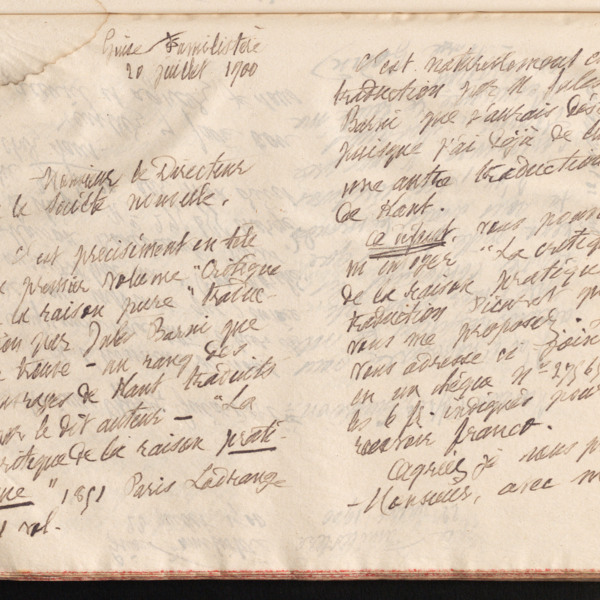 Guise Familistère
20 juillet 1900
Monsieur le Directeur
de la Société nouvelle.
C'est précisément en tête
premier volume "Critique
la raison pure" traduc-
tion par Jules Barni que
trouve - au rang des
ouvrages de Kant traduits
par le dit auteur - "La
Critique de la raison prati-
que" 1851 Paris Ladrange
1 vol.
C'est naturellement
traduction par M Jules
Barni que j'aurais
puisque j'ai déjà
une autre traduction
de Kant.
à défaut, vous
m'envoyer "La critique
de la raison pratique
traduction
vous me proposez.
vous adresse ci joint
en un chèque N°
les 6 fr. indiqués pour
recevoir franco.
Agréez je vous
Monsieur, avec